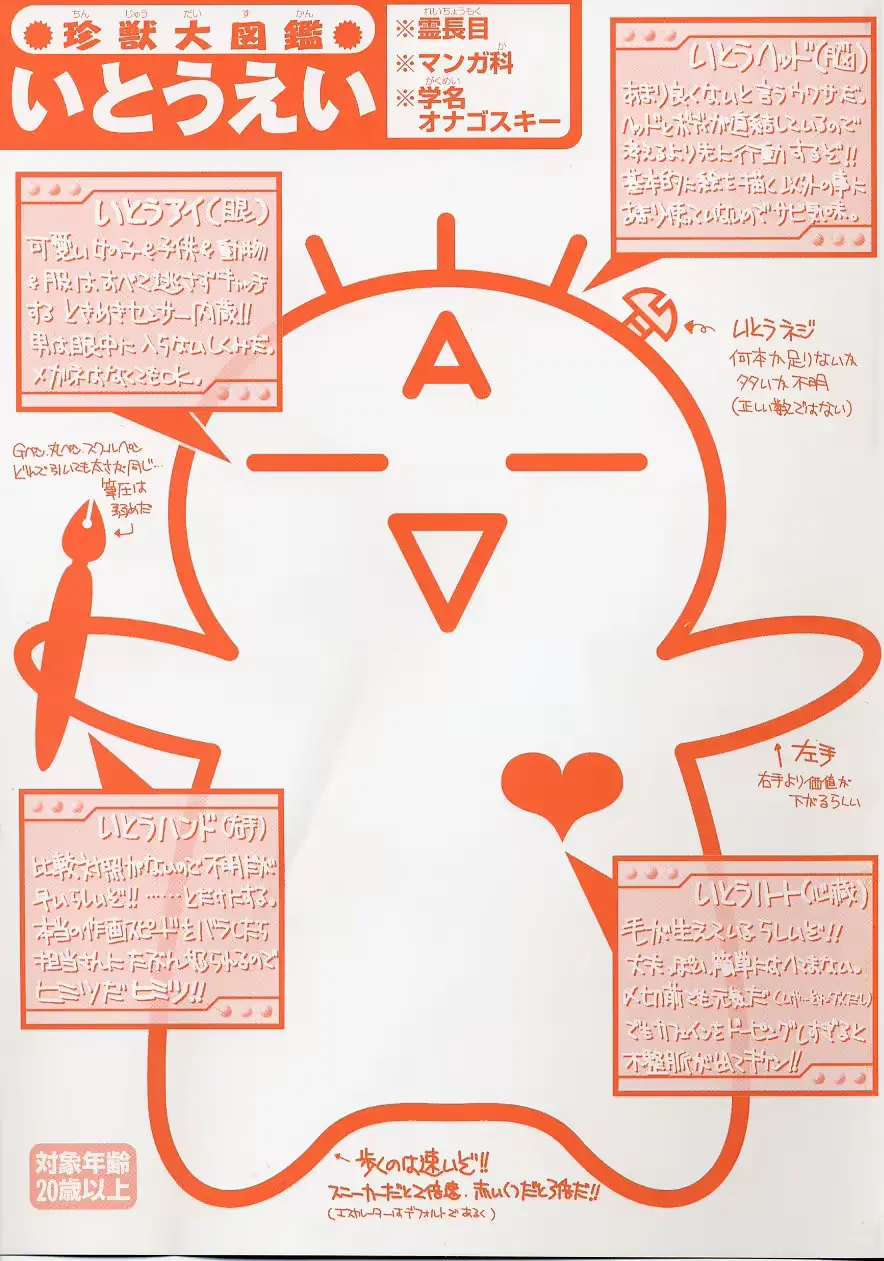 ちんじゅうだいずかん
珍獣大図鑑
いとうえい
れいちょうもく
※霊長目
か
※マンガ科
がくめい
※学名
オナゴスキー
いとうヘッド(脳)
あまり良くないと言うウワサだ。
ヘッドとボディが直結しているので
考えるより先に行動するぞ!!
基本的に絵を描く以外の事に
あまり使っていないのでサビ気味。
いとうアイ(眼)
可愛い女の子や子供や動物
や服は、すべて逃さずキャッチ
するときめきセンサー内蔵!!
男は眼中に入らないしくみだ。
メガネはなくてもOK。
いとうネジ
何本か足りないか
多いか不明
(正しい数ではない)
Gペン、丸ペン、スクールペン
どれで引いても太さが同じ…
筆圧は
弱めだ
左手
右手より価値が
下がるらしい
いとうハンド(右手)
比較対照がないので不明だが
早いらしいぞ!! ……とだけにする。
本当の作画スピードをバラしたら
担当さんにたぶん怒られるので
ヒミツだヒミツ!!
いとうハート(心臓)
毛が生えているらしいぞ!!
丈夫っぽい、簡単にはへこまない。
〆切前でも元気だ
でもカフェインをドーピングしすぎると
不整脈が出てキケン!!
歩くのは速いぞ!!
スニーカーだと2倍速、赤いくつだと3倍だ!!
(エスカレーターはデフォルトであるく)
対象年齢
20歳以上